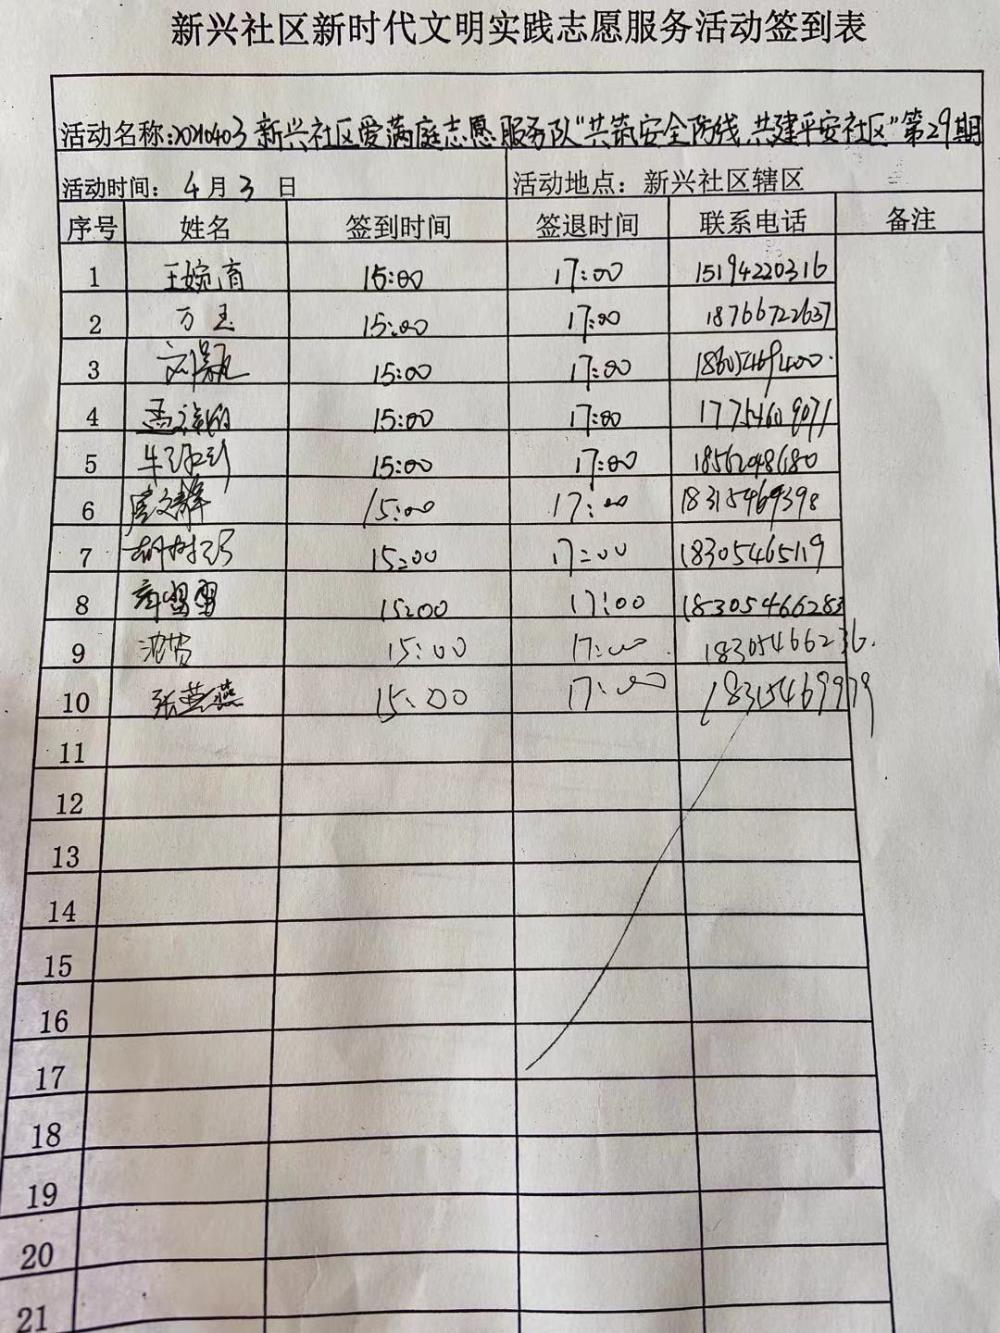 新兴社区新时代文明实践志愿服务活动签到表
活动名称: 新兴社区爱满庭志愿服务队"共筑安全防线,共建平安社区"第29期
活动时间: 4月3日 活动地点: 新兴社区辖区
序号 姓名 签到时间 签退时间 联系电话 备注
1 15:00 17:00 15194220316
2 万玉 15:00 17:00 18766722637
3 15:00 17:00 18605469400
4 15:00 17:00
5 15:00 17:00 18562048680
6 15:00 17:00 18315469398
7 15:00 17:00 18305465119
8 15:00 17:00 18305466283
9 15:00 17:00 18305466236.
10 张燕燕 15:00 17:00 18315469979
11
12
13
14
15
16
17
18
19
20
21